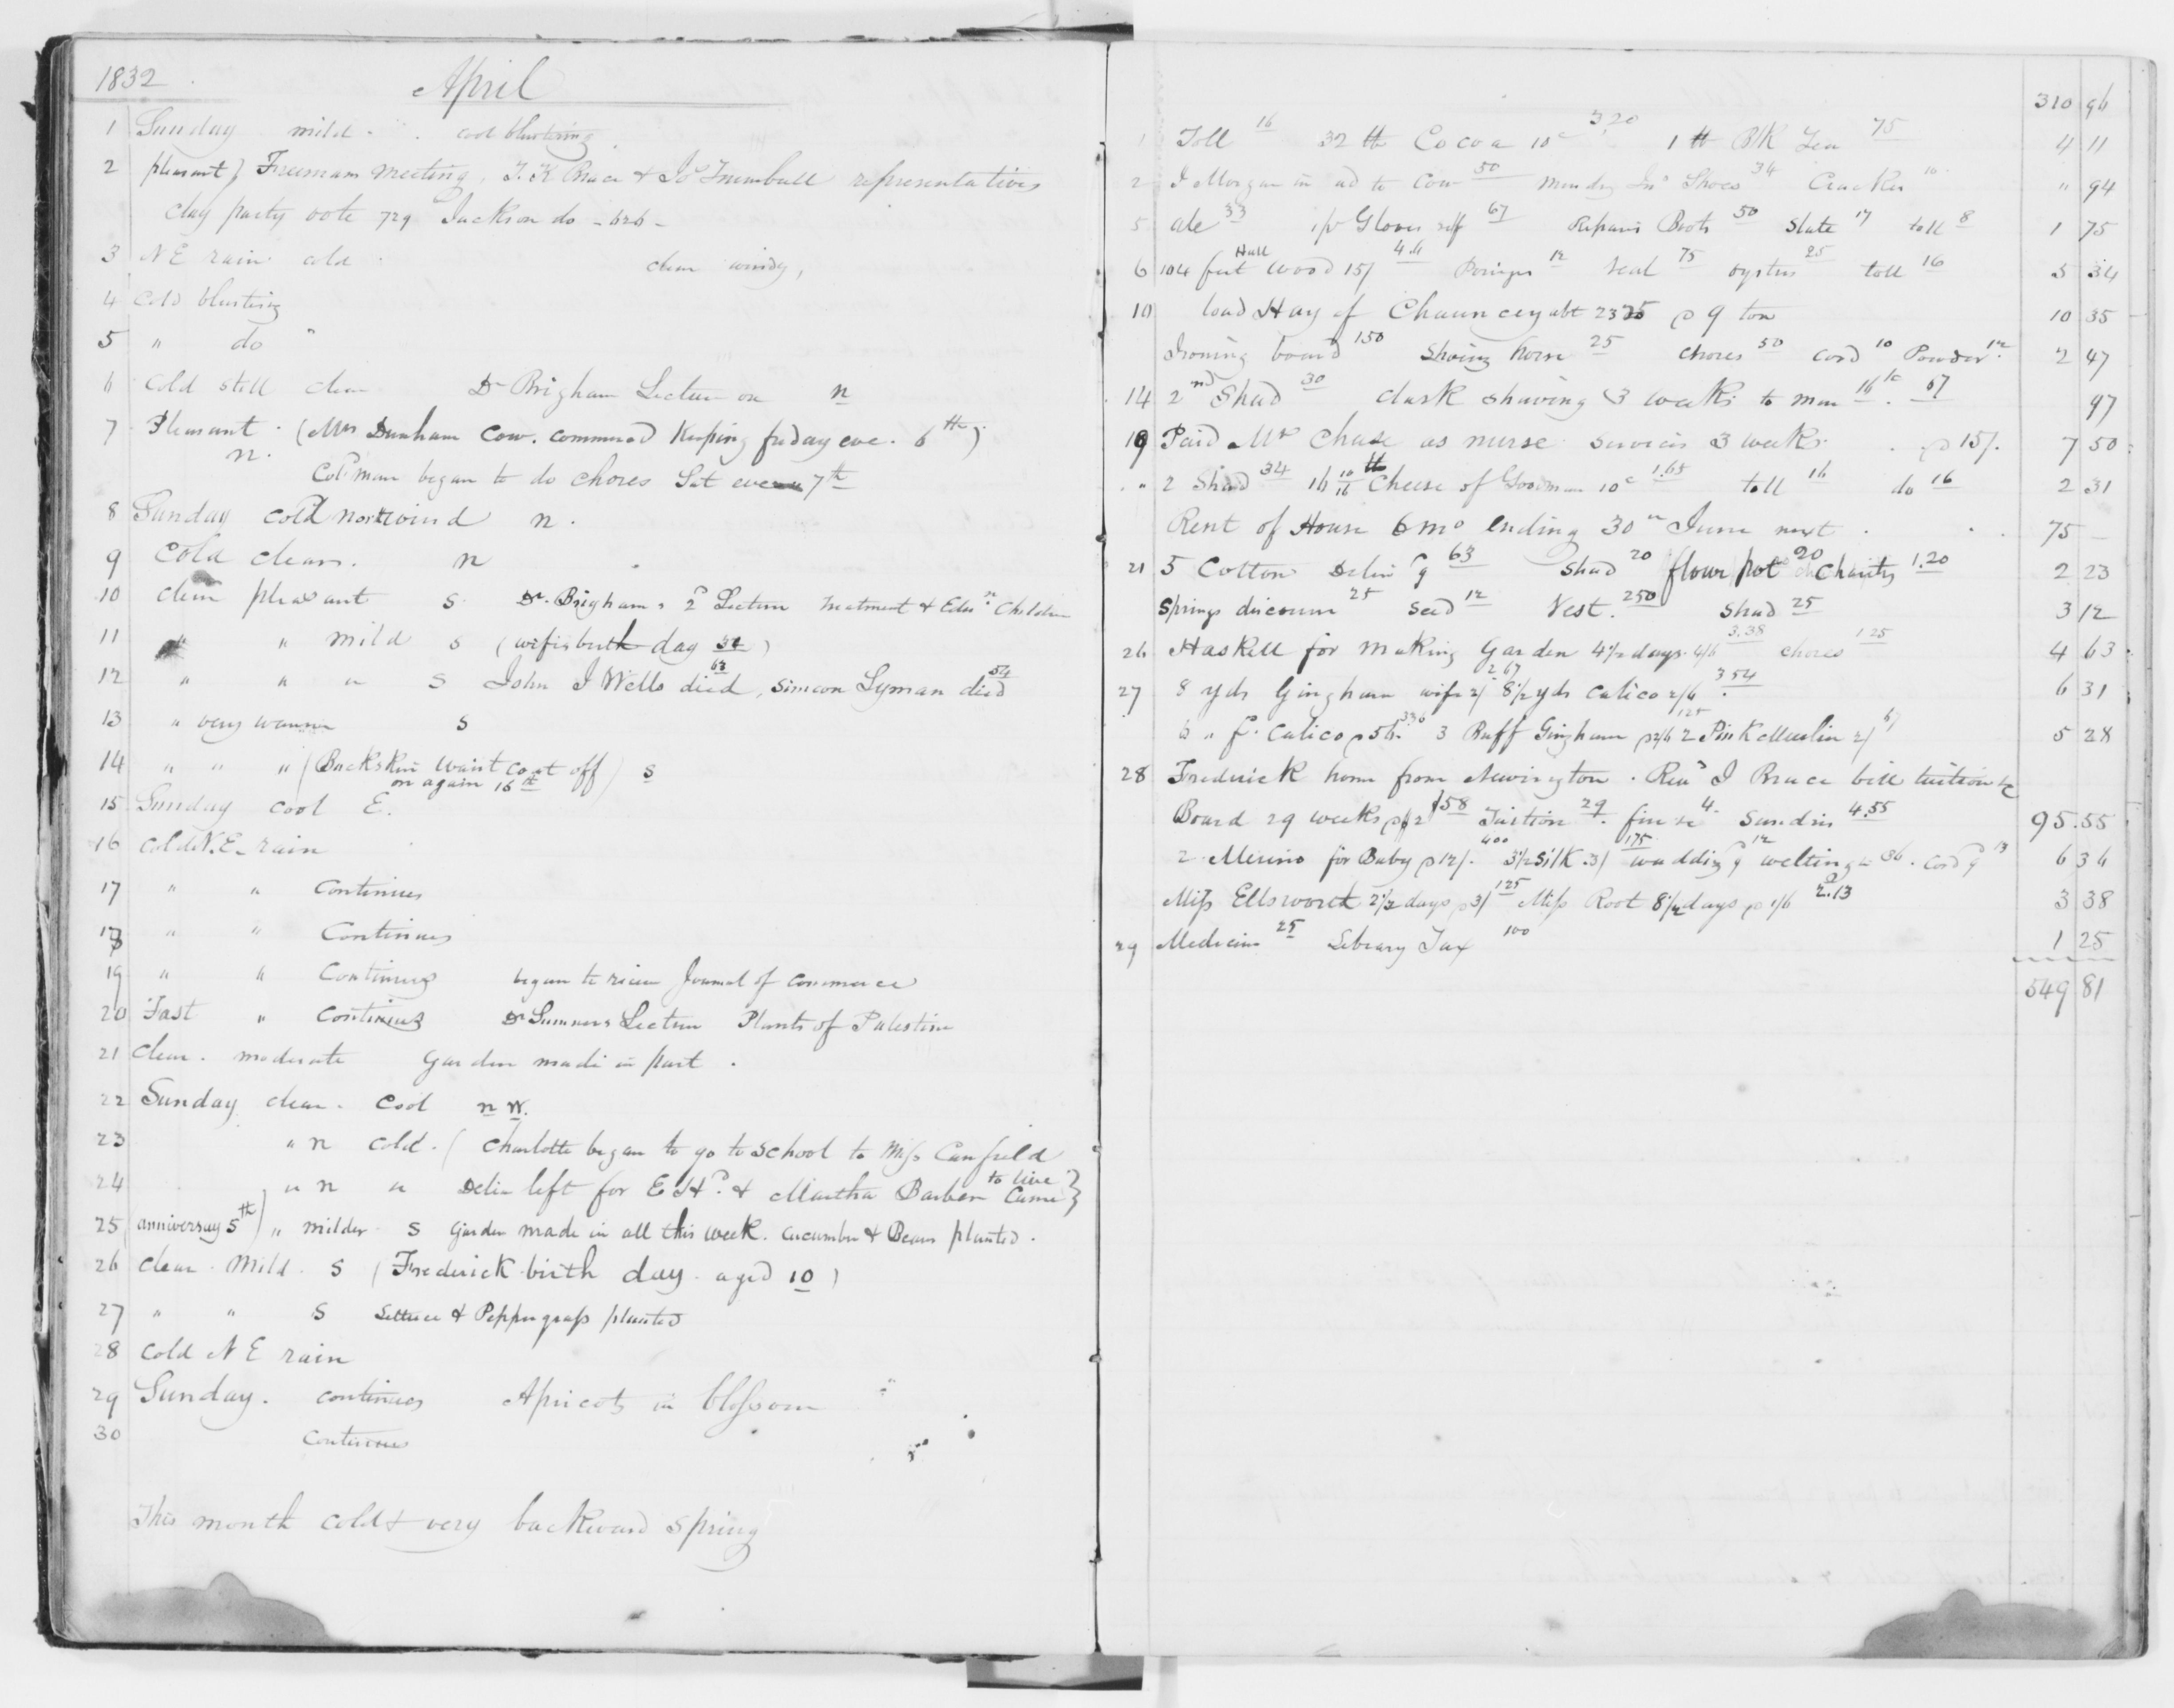 1832 April
1 Sunday mild . . cool blustering
2 pleasant } Freemans meeting, T. K Brace & Jos Trumbull representatives
Clay party vote 729 Jackson do - 626 -
3 N E rain cold clear windy,
4 cold blustering
5 " do "
6 Cold still clear Dr Brigham Lecture on n
7 Pleasant . (Mrs Dunham Cow. commenced Keeping friday eve. 6th)
n. Colman began to do chores Sat eve 7th
8 Sunday cold nortwind n .
9 Cold clear. n
10 clear pleasant s Dr. Brighams 2d Lecture Treatment & Educn Children
11 " " mild s (wifes birth day 34)
12 " " " s John I Wells died 63, Simeon Lyman died 54
13 " very warm s
14 " " " (Buckskin waist coat off) s
on again 16th
15 Sunday cool E.
16 cold N.E. rain
17 " " Continues
18 " " Continues
19 " " Continues began to receive Journal of Commerce
20 Fast " Continues Dr Sumners Lecture Plants of Palestine
21 Clear . moderate Garden made in part .
22 Sunday clear . Cool n W.
23 " n cold . ( Charlotte began to go to School to Miss Canfield
24 " n " Delia left for E Hd. & Martha Barber to live Came }
25 (anniversary 5th) " milder s Garden made in all this week. Cucumber & Beans planted .
26 Clear . Mild . s (Frederick birth day . aged 10 )
27 " " s Lettuce & Peppergrass planted
28 cold N E rain
29 Sunday . continues Apricots in blossom
30 Continues
This month cold & very backward spring
310 96
1 Toll 16 32 tt Cocoa 10c 3,20 1 tt Blk Tea 75 4 11
2 J Morgan in ad to Cow 50 mendg Shoes 34 Cracker 10 " 94
5 ale 33 1 pr Gloves self 67 Repairs Boots 50 Slate 17 toll 8 1 75
6 104 feet Wood 15/ 4 Seal 75 oysters 25 toll 16 5 34
10 load Hay of Chauncey abt 23 @ 9 ton 10 35
Ironing board 150 Shoeing horse 25 chores 50 cord 10 Powder 12 2 47
14 2nd Shad 30 Clark shaving 3 weeks 67 97
19 Paid Mrs Chase as nurse services 3 weeks . @ 15/. 7 50
" 2 Shad 34 16 10/16 tt Cheese of Goodman 10c 1.65 toll 16 do 16 2 31
Rent of House 6 mo ending 30th June next . . 75 -
21 5 Cotton Delia 63 Shad 20 flour pot 20 Charity 1.20 2 23
Springs discount 25 Seed 12 Vest . 250 Shad 25 3 12
26 Haskell for making Garden 4 1/2 days 4/6 3.38 chores 1 25 4 63
27 8 yds Gingham wife 2/ 2 67 8 1/2 yds calico 2/6 3 54 6 31
6 " f. Calico @ 56 336 3 Buff Gingham @ 2/6 125 2 Pink Muslin 2/ 67 5 28
28 Frederick home from Newington . Revd J Brace bill tuition &c
Board 29 weeks @ $2 $58 Tuition 29 . fire &c 4. Sundries 4.55 95.55
2 Merino for Baby @ 12/. 400 3 1/2 Silk .3/ 175 wadding 9 welting 12 cord 9 6 36
Miss Ellsworth 2 1/2 days @ 3/ 125 Miss Root 8 1/2 days @ 1/6 2.13 3 38
29 Medicine 25 Library Tax 100 1 25
549 81